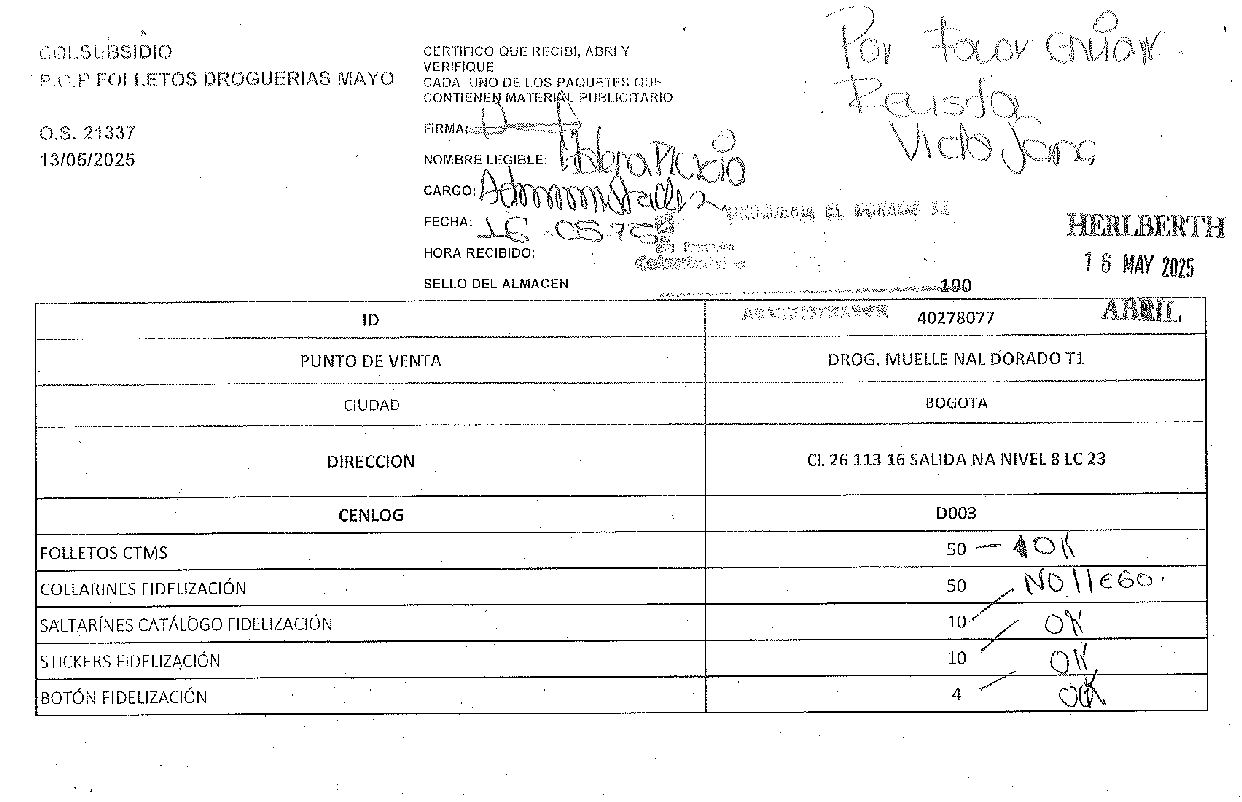 COLSUBSIDIO
P.O.P FOLLETOS DROGUERIAS MAYO
O.S. 21337
13/05/2025
CERTIFICO QUE RECIBI, ABRI Y
VERIFIQUE
CADA UNO DE LOS PAQUETES QUE
CONTIENEN MATERIAL PUBLICITARIO
FIRMA:
NOMBRE LEGIBLE:
CARGO:
FECHA:
HORA RECIBIDO:
SELLO DEL ALMACEN
Por favor enviar
Revista
HERLBERTH
16 MAY 2025
ABRIL.
100
ADMINISTRADOR
ID 40278077
PUNTO DE VENTA DROG. MUELLE NAL DORADO T1
CIUDAD BOGOTA
DIRECCION CL 26 113 16 SALIDA NA NIVEL 8 LC 23
CENLOG D003
FOLLETOS CTMS 50 — OK
COLLARINES FIDELIZACIÓN 50 NO llEGO.
SALTARÍNES CATÁLOGO FIDELIZACIÓN 10 OK
STICKERS FIDELIZACIÓN 10 OK
BOTÓN FIDELIZACIÓN 4 OK